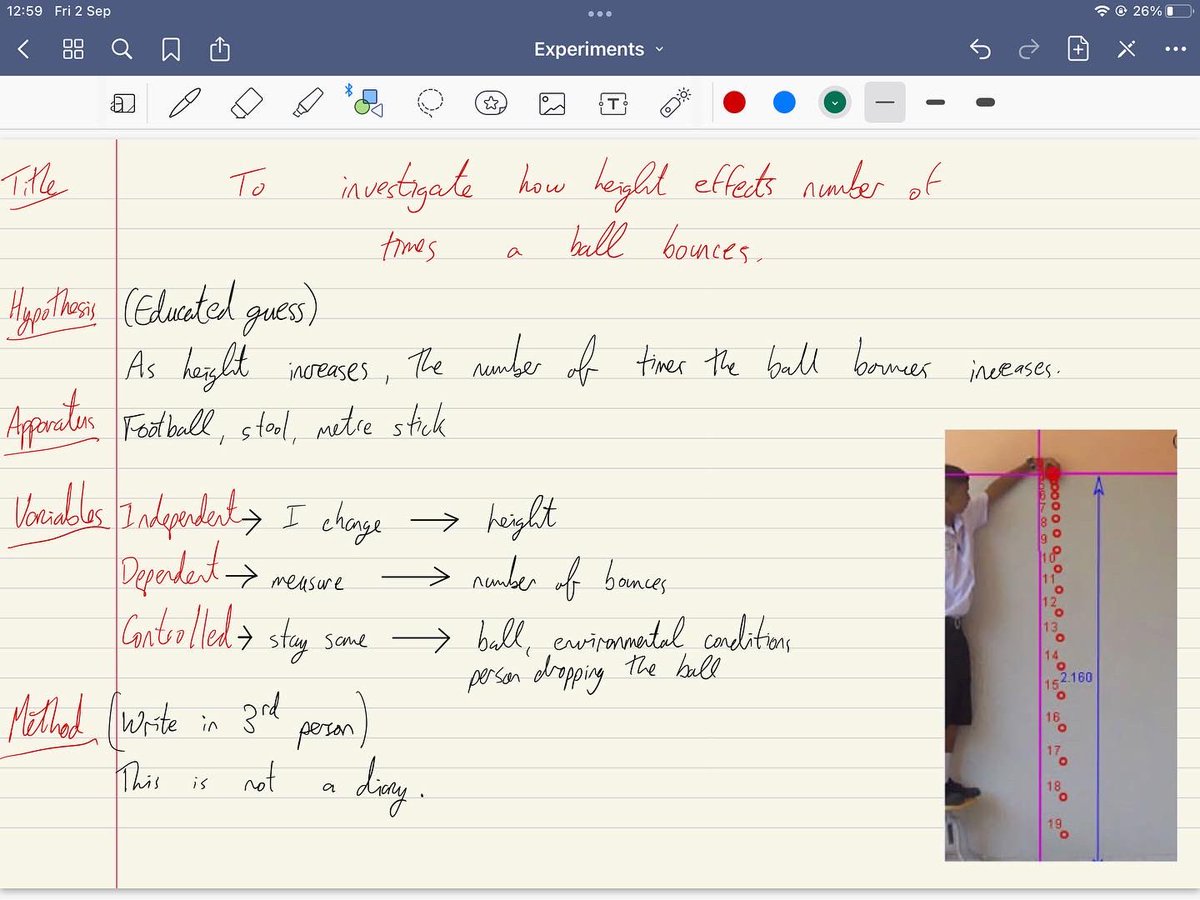 12:59 Fri 2 Sep
26%
Experiments
Title
To investigate how height effects number of
times a ball bounces.
Hypothesis (Educated guess)
As height increases, the number of times the ball bounces increases.
Apparatus Football, stool, metre stick
Variables Independent → I change → height
Dependent → measure → number of bounces
Controlled → stay same → ball, environmental conditions
person dropping the ball
Method (Write in 3rd person)
This is not a diary.
6
7
8
9
10
11
12
13
14
2.160
15
16
17
18
19